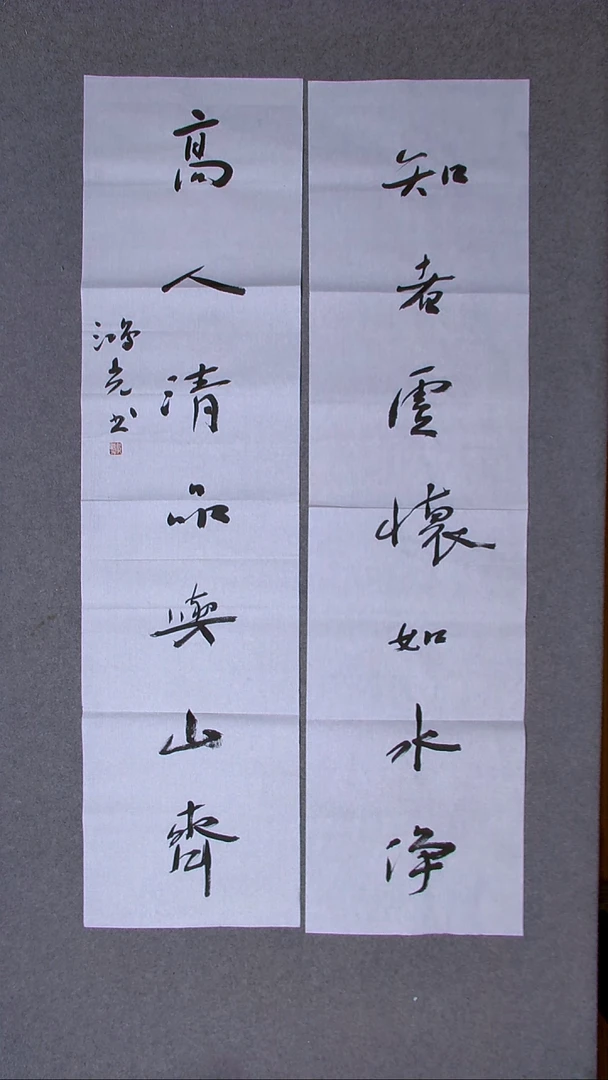 知者虛懷如水淨
高人清品與山齊
鴻光书